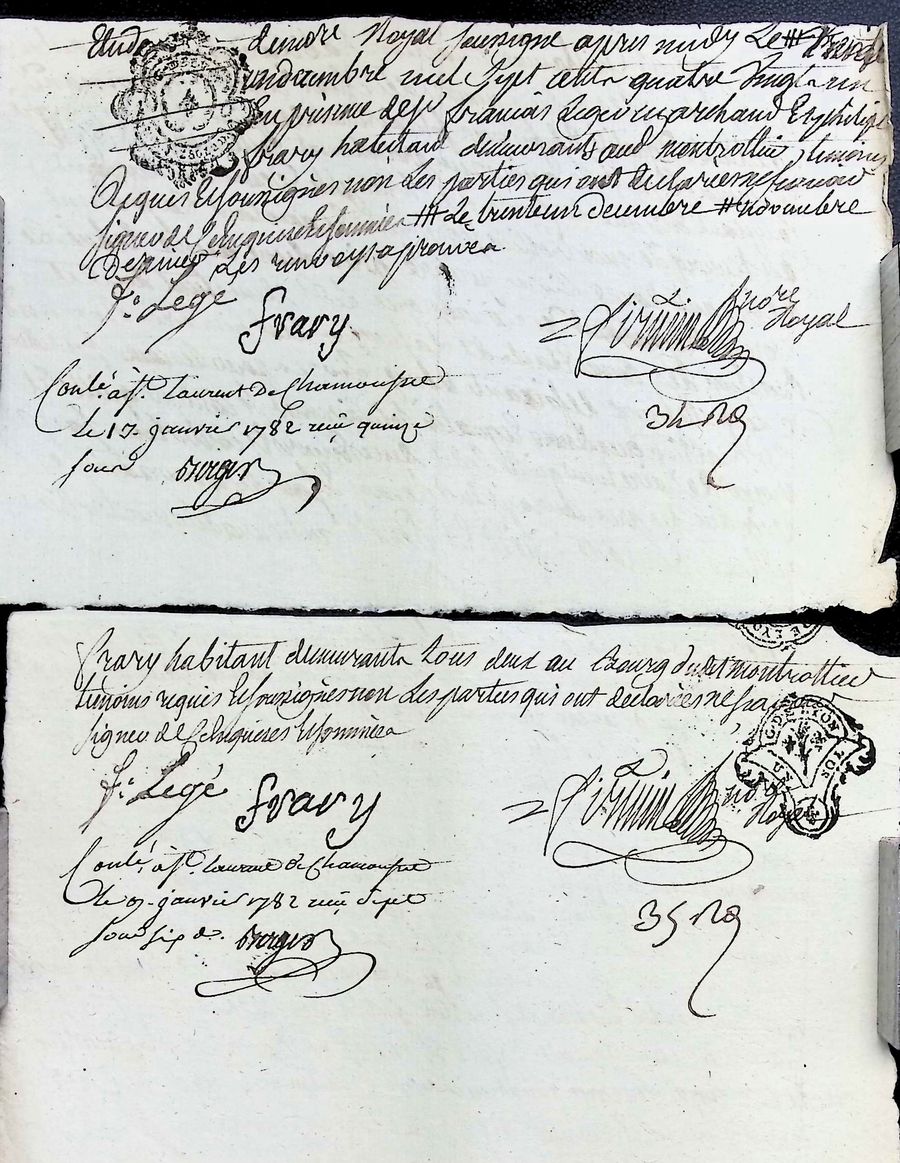 Etude notre Royal soussigné apres midy Le
undecembre mil Sept cents quatre Vingt un
En presence de sr francois Legé marchand Et philipe
frary habitant demeurants aud montrottier temoins
Requis Et soussignés non Les parties qui ont declarées ne scavoir
signer de Enquises Et sommées ## Le trente un decembre # novembre
Dernier Les renvoys approuvés
fs. Legé
frary
notre
Royal
Conlé. à st. Laurent De Chamousset
Le 13. janvier 1782 reçu quinze
sous
34 Rd
frary habitant demeurants tous deux au Bourg dudt montrottier
temoins requis Et soussignés non Les parties qui ont declarées ne sca
signer de Enquises Et sommées
fs. Legé
frary
notre
Royal
G. DE LYON
UN SOL
Conlé. à st. Laurent De Chamousset
Le janvier 1782 reçu sept
sous six d.
35 Rd